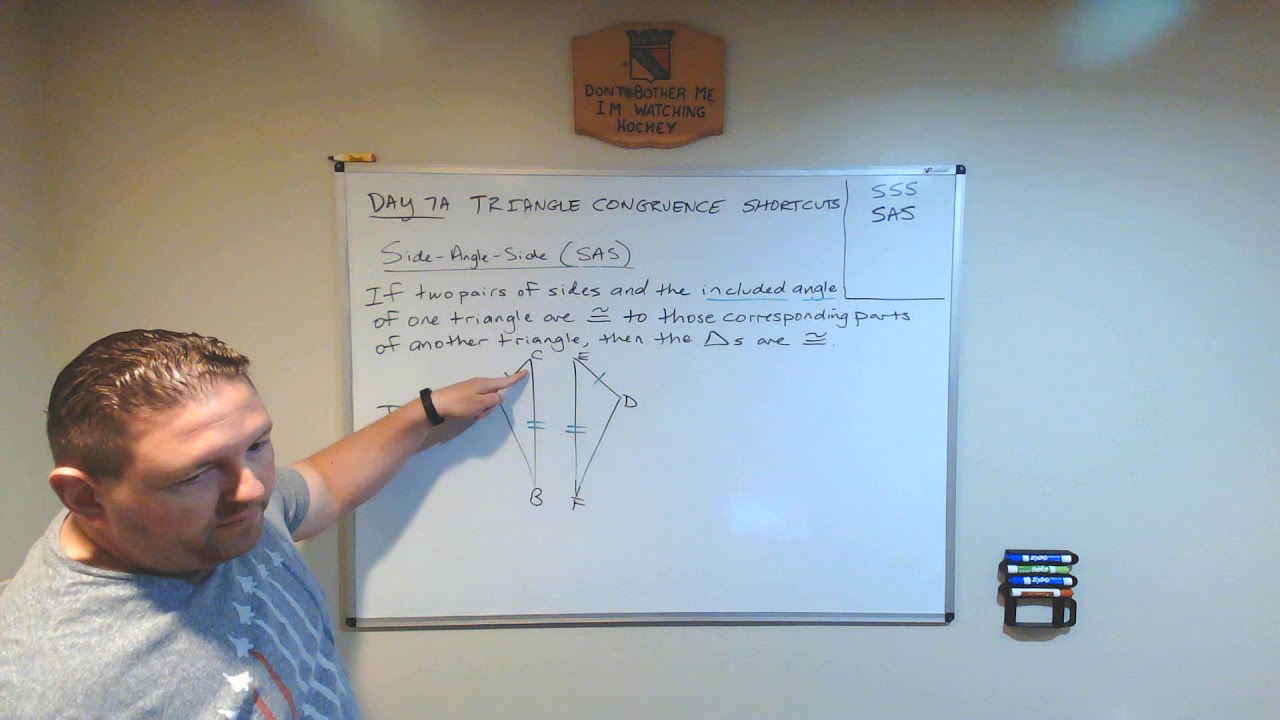 DON'T BOTHER ME
I'M WATCHING
HOCKEY
DAY 7A TRIANGLE CONGRUENCE SHORTCUTS
SSS
SAS
Side-Angle-Side (SAS)
If two pairs of sides and the included angle
of one triangle are ≅ to those corresponding parts
of another triangle, then the △s are ≅.
C E
D
B F
EXPO
EXPO